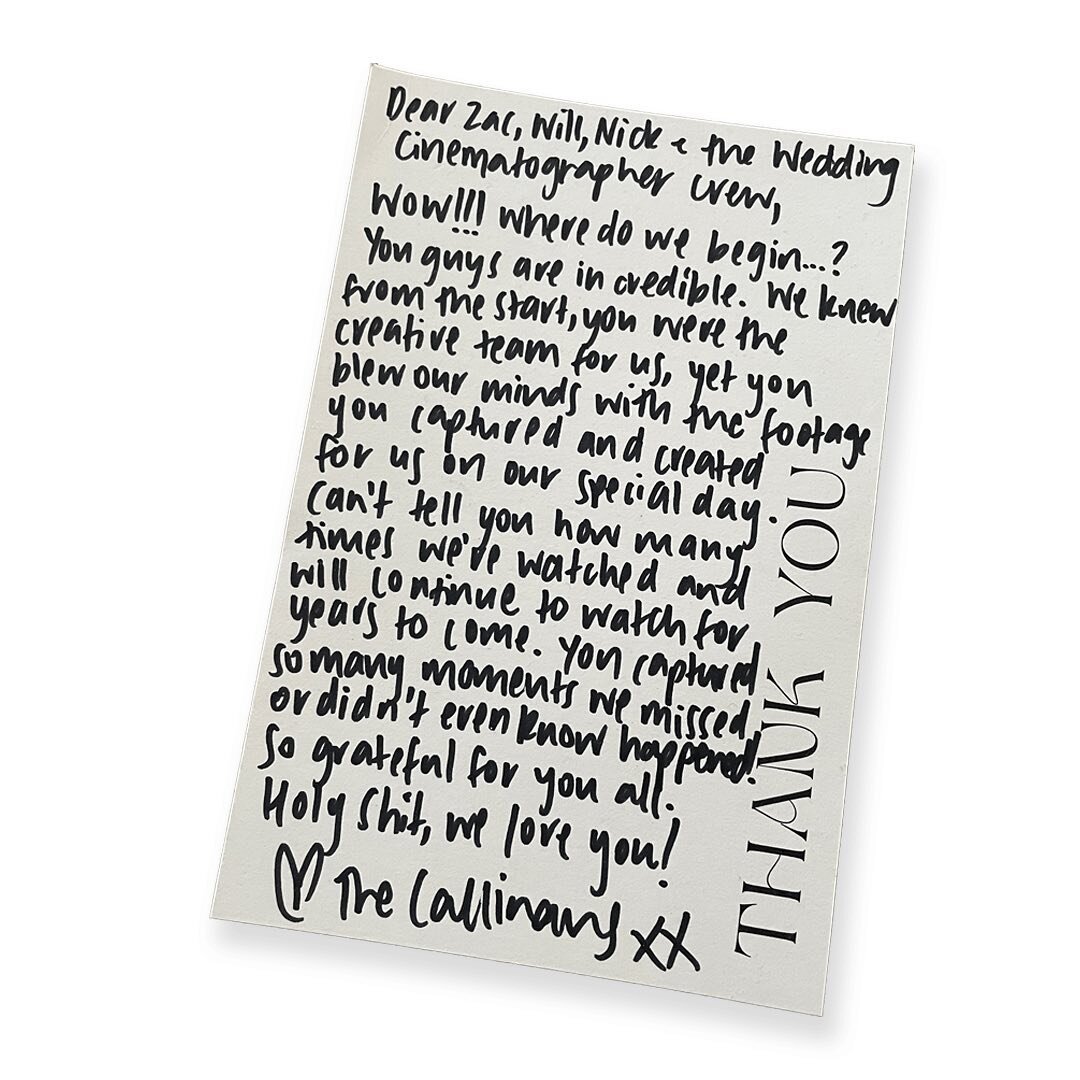 Dear Zac, Will, Nick & the Wedding
Cinematographer Crew,
Wow!!! Where do we begin...?
You guys are incredible. We knew
from the start, you were the
creative team for us, yet you
blew our minds with the footage
you captured and created
for us on our special day.
Can't tell you how many
times we've watched and
will continue to watch for
years to come. You captured
so many moments we missed
or didn't even know happened!
So grateful for you all.
Holy shit, we love you!
♡ The Callinans xx
THANK YOU